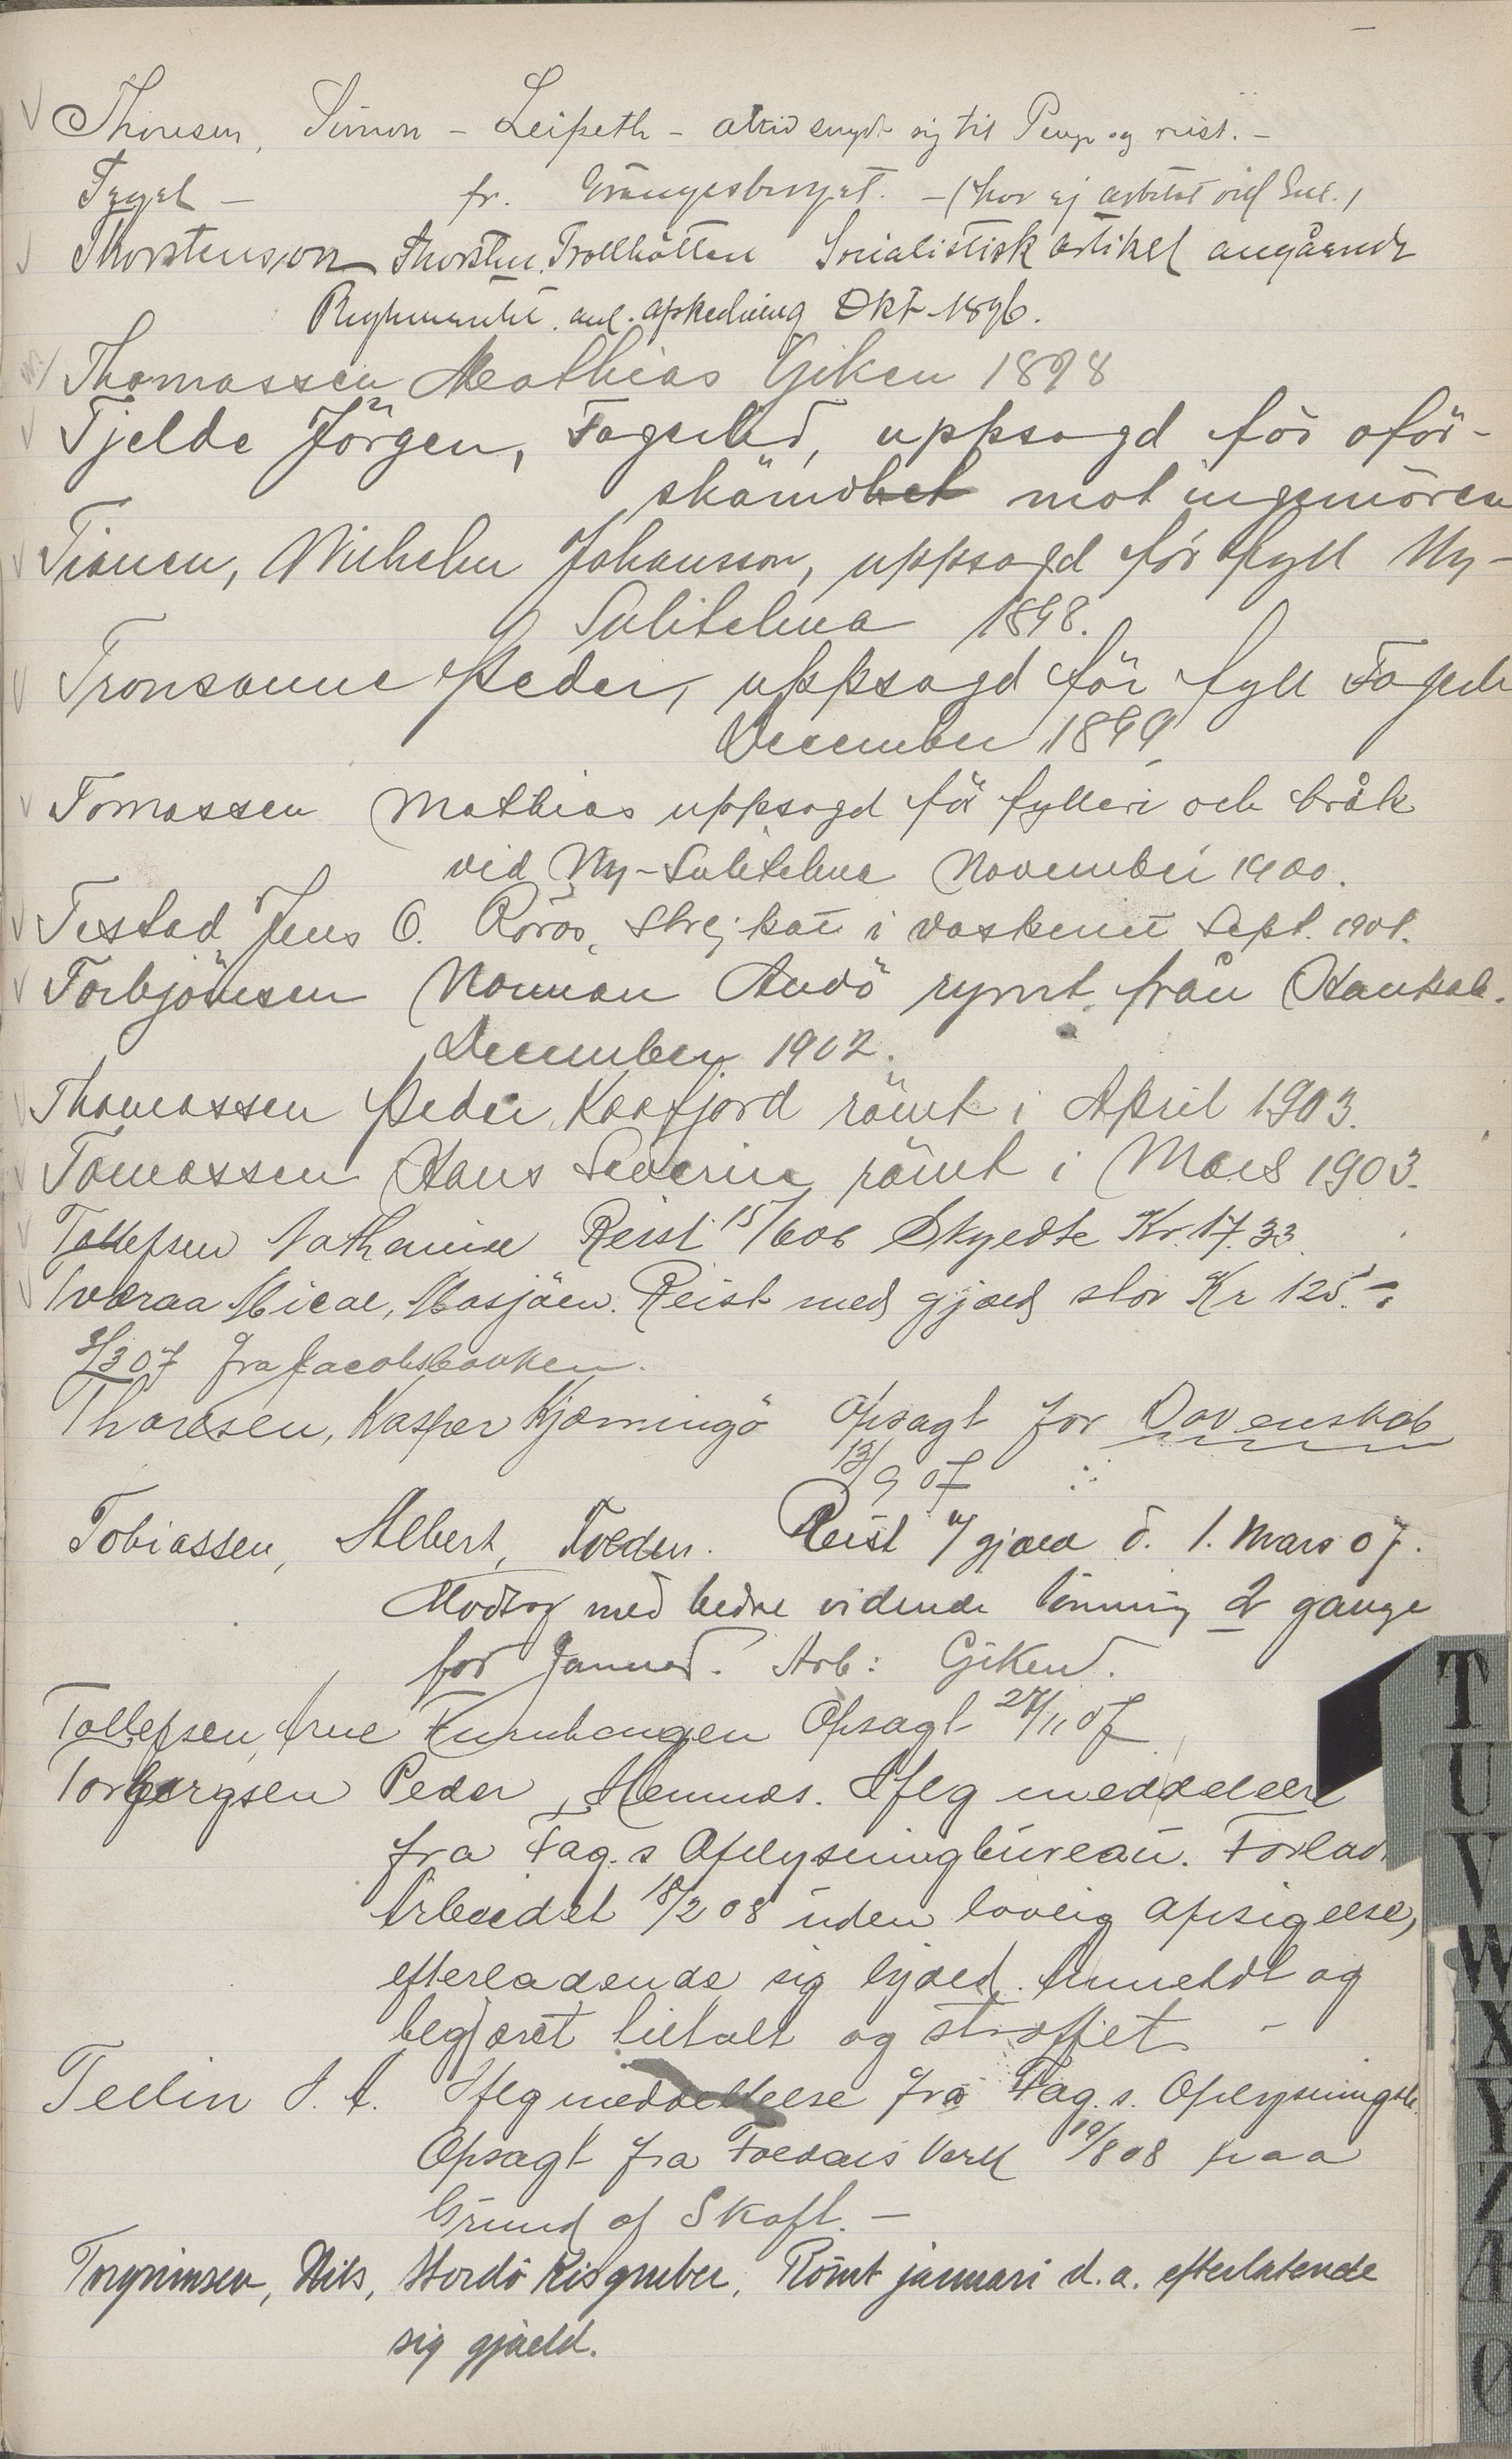 Thoresen, Simon - Leipeth - altid snydt sig til Penge og reist. -
Tegel - fr. Grängesberget. - (har ej arbetat vid Sul.)
Thorstenson Thorsten, Trollhättan Socialistisk Artikel angående
Reglementet. anl. afskedning Okt. 1896.
Thomassen Mathias Giken 1898
Tjelde Jörgen, Fagerlid, uppsagd för oför-
skämdhet mot ingeniören
Tianen, Wilhelm Johansson, uppsagd för fyll Ny-
Sulitelma 1898.
Tronsaune Peder, uppsagd för fyll Fagerli
December 1899
Tomassen Mathias uppsagd för fylleri och bråk
vid Ny-Sulitelma November 1900.
Testad Jens O. Röros, Strejkat i vaskeriet Sept. 1901.
Torbjörnsen Norman Andö rymt från Hankab.
December 1902.
Thomassen Peder, Kaafjord römt i April 1903.
Tomassen Hans Severin römt i Mars 1903.
Tollefsen Nathanise Reist 15/6 06 Skyldte Kr. 17.33
Tveraa Micael, Mosjöen. Reist med gjæld stor Kr 125.-
3/3 07 fra Jacobsbakken.
Thoresen, Kasper Kjærringö Opsagt for Dovenskab
13/9 07
Tobiassen, Albert, Folden. Reist m/gjæld d. 1. Mars 07.
Modtog med bedre vidende lönning 2 gange
for Januar. Arb: Giken.
Tollefsen, Arne Furuhaugen Opsagt 27/11 07
Torbergsen Peder, Hemnæs. Iflg meddelelse
fra Fag.s Oplysningbureau. Forladt
Arbeidet 18/2 08 uden lovlig opsigelse,
efterladende sig gjæld. Anmeldt og
begjæret tiltalt og straffet -
Tellin J. A. Iflg meddellelse fra Fag.s. Oplysningsb.
Opsagt fra Foldals Verk 19/8 08 paa
Grund af Skoft. -
Torgrimsen, Nils, Stordö Kisgruber, Römt januari d.a. efterlatende
sig gjæld.
T
U
V
W
X
Y
Z
Ö